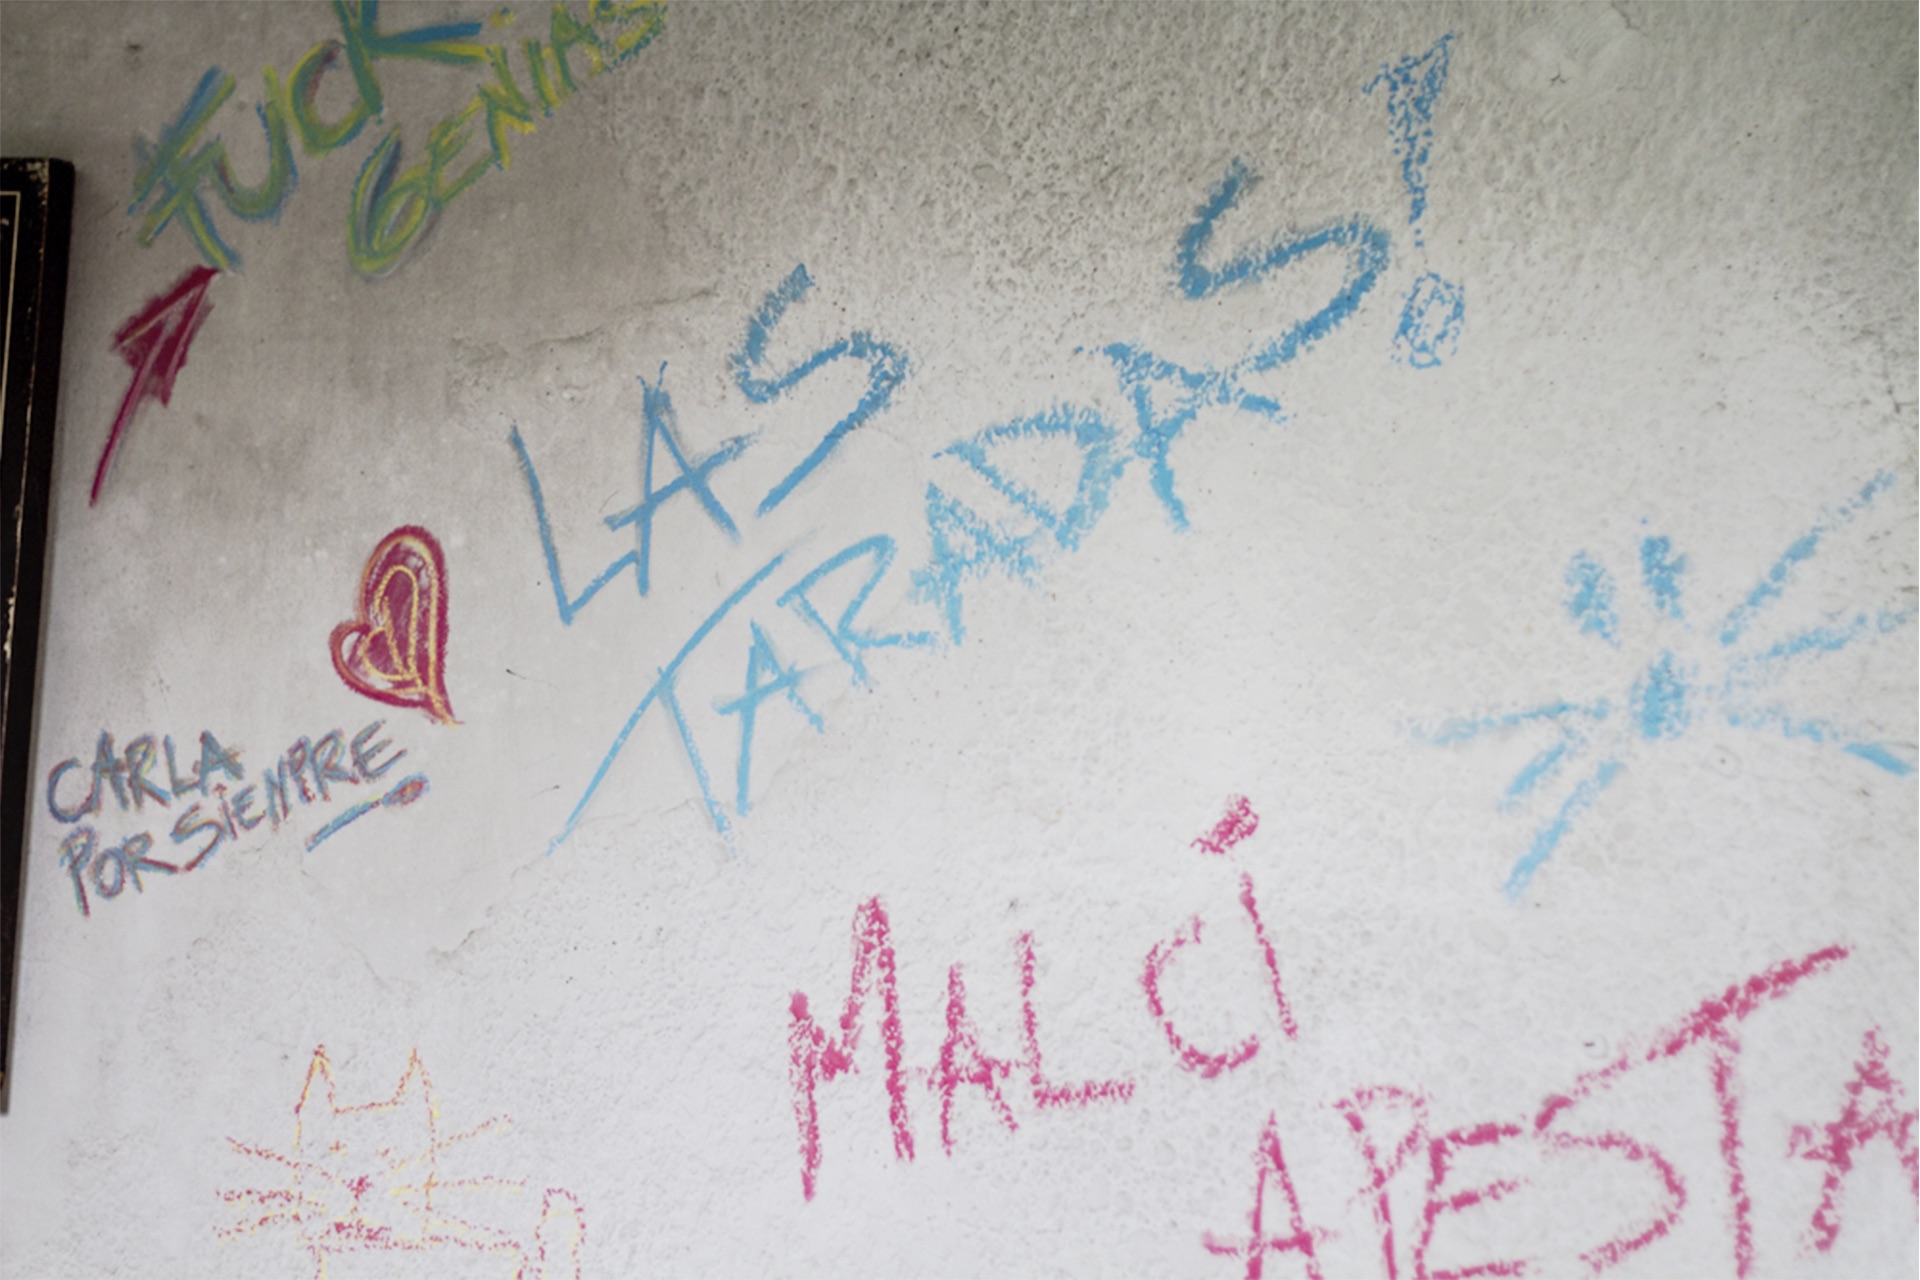 FUCK
GENIAS
LAS
TARADAS!
CARLA
POR SiEMPRE
MALCİ
APESTA